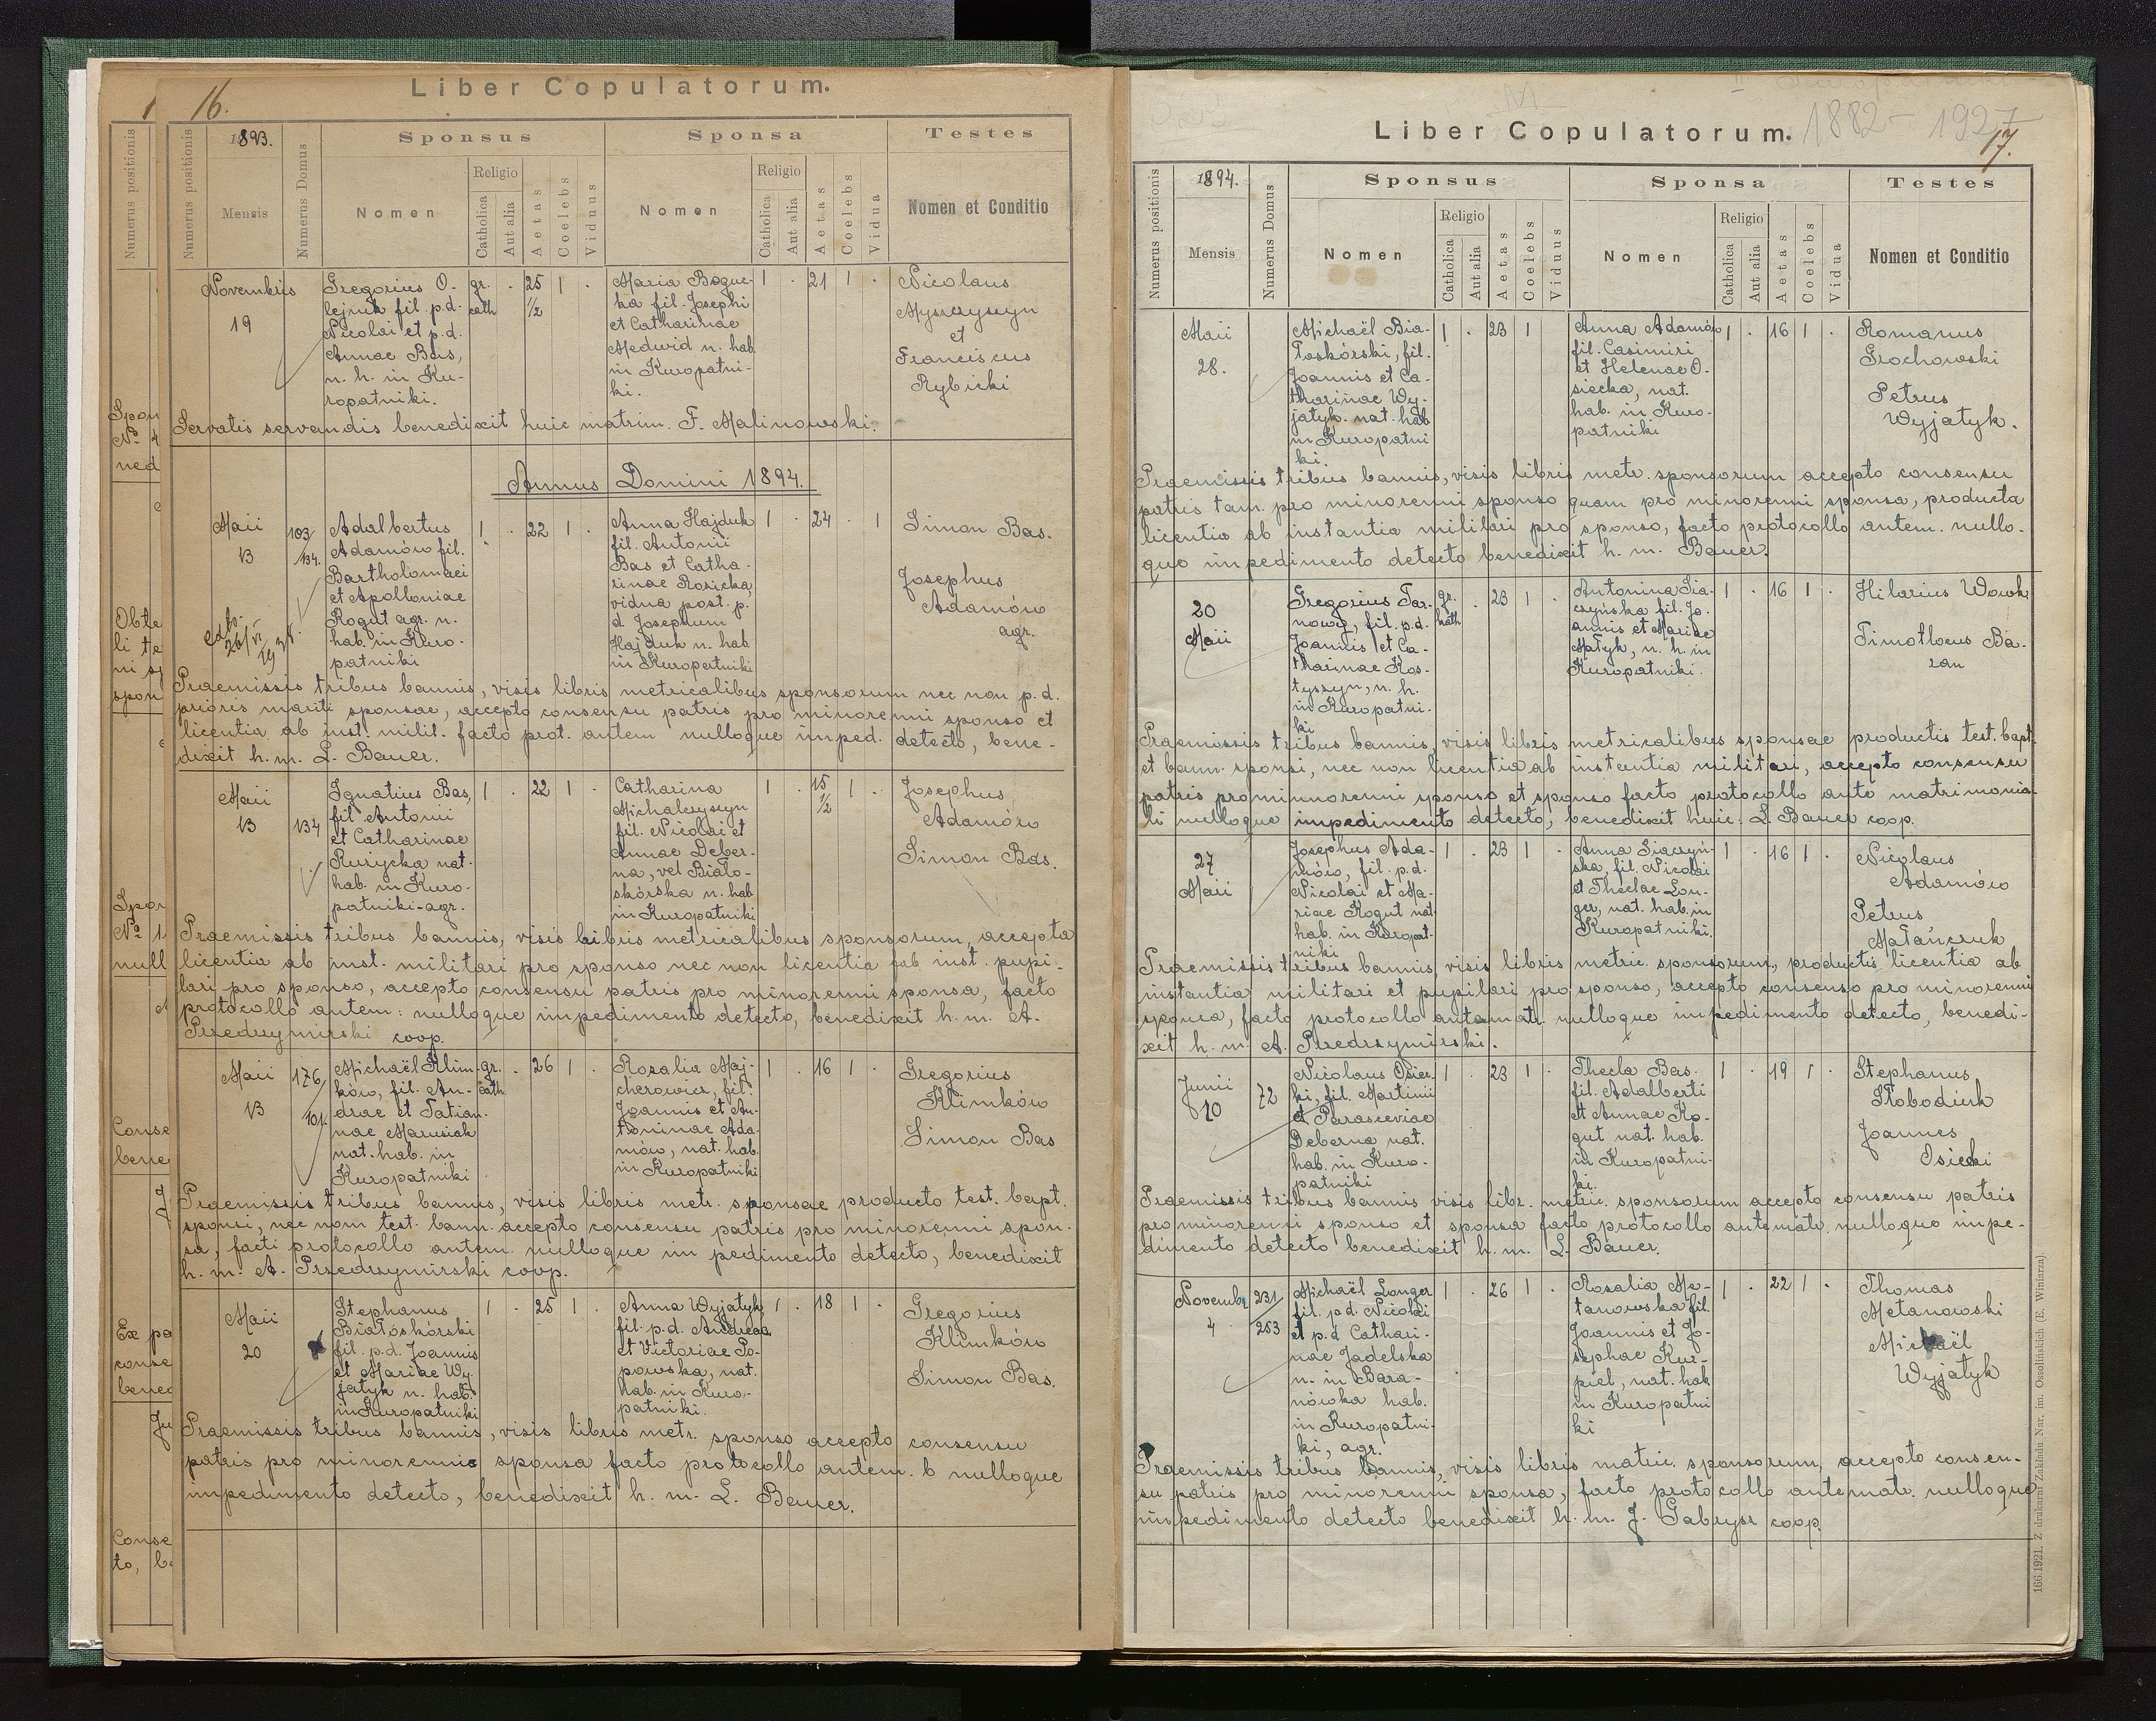 16.
Liber Copulatorum.
Numerus positionis
1893.
Mensis
Numerus Domus
Sponsus
Nomen
Religio
Catholica
Aut alia
Aetas
Coelebs
Viduus
Sponsa
Nomen
Religio
Catholica
Aut alia
Aetas
Coelebs
Vidua
Testes
Nomen et Conditio
Novembris
19
Gregorius O-
lejnik fil. p.d.
Nicolai et p.d.
Annae Bas,
n. h. in Ku-
ropatniki.
gr.
cath
25
1/2
1
Maria Bogue-
ka fil. Josephi
et Catharinae
Medwid n. hab
in Kuropatni-
ki.
1 . 21 1 .
Nicolaus
Myszczyszyn
et
Franciscus
Rybicki
Servatis servandis benedixit huic matrim. F. Malinowski.
Annus Domini 1894.
Maii
13
103/
134.
Adalbertus
Adamów fil.
Bartholomaei
et Apolloniae
Kogut agr. n.
hab. in Kuro-
patniki
1 . 22 1 .
Anna Hajduk
fil. Antonii
Bas et Catha-
rinae Rosicka,
vidua post. p.
d Josephum
Hajduk n. hab
in Kuropatniki
1 . 24 . 1
Simon Bas.
Josephus
Adamów
agr.
Praemissis tribus bannis, visis libris metricalibus sponsorum nec non p. d.
prioris mariti sponsae, accepto consensu patris pro minorenni sponso et
licentia ab inst. milit. facto prot. antem nulloque imped. detecto, bene-
dixit h. m. L. Bauer.
Maii
13
134
Ignatius Bas,
fil. Antonii
et Catharinae
Rużycka nat.
hab. in Kuro-
patniki-agr.
1 . 22 1 .
Catharina
Michalczyszyn
fil. Nicolai et
Annae Deber-
na, vel Biało-
skórska n. hab
in Kuropatniki
1 . 15
1/2 1 .
Josephus
Adamów
Simon Bas.
Praemissis tribus bannis, visis libris metricalibus sponsorum, accepta
licentia ab inst. militari pro sponso nec non licentia ab inst. pupi-
lari pro sponso, accepto consensu patris pro minorenni sponsa, facto
protocollo antem: nulloque impedimento detecto, benedixit h. m. A.
Przedrzymirski coop.
Maii
13
176/
101.
Michaël Klim-
ków, fil. An-
drae et Tatian-
nae Marusiak
nat. hab. in
Kuropatniki
gr.
cath
. 26 1 .
Rosalia Maj-
cherowicz, fil.
Joannis et An-
toninae Ada-
mów, nat. hab.
in Kuropatniki
1 . 16 1 .
Gregorius
Klimków
Simon Bas
Praemissis tribus bannis, visis libris metr. sponsae producto test. bapt.
sponsi, nec nom test. bann. accepto consensu patris pro minorenni spon-
sa, facti protocollo antem. nulloque impedimento detecto, benedixit
h. m. A. Przedrzymirski coop.
Maii
20
Stephanus
Białoskórski
fil. p.d. Joannis
et Mariae Wy-
jatyk n. hab.
in Kuropatniki
1 . 25 1 .
Anna Wyjatyk
fil. p.d. Andreae
et Victoriae Po-
powska, nat.
hab. in Kuro-
patniki.
1 . 18 1 .
Gregorius
Klimków
Simon Bas.
Praemissis tribus bannis, visis libris metr. sponso accepto consensu
patris pro minorennis sponsa facto protocollo antem. b nulloque
impedimento detecto, benedixit h. m. L. Bauer.
1882 - 1927
17.
Liber Copulatorum.
Numerus positionis
1894.
Mensis
Numerus Domus
Sponsus
Nomen
Religio
Catholica
Aut alia
Aetas
Coelebs
Viduus
Sponsa
Nomen
Religio
Catholica
Aut alia
Aetas
Coelebs
Vidua
Testes
Nomen et Conditio
Maii
28.
Michaël Bia-
łoskórski, fil.
Joannis et Ca-
tharinae Wy-
jatyk. nat. hab
in Kuropatni
ki.
1 . 23 1
Anna Adamów
fil. Casimiri
et Helenae O-
siecka, nat.
hab. in Kuro-
patniki
1 . 16 1 .
Romanus
Grochowski
Petrus
Wyjatyk.
Praemissis, tribus bannis, visis libris metr. sponsorum accepto consensu
patris tam. pro minorenni sponso quam pro minorenni sponsa, producta
licentia ab instantia militari pro sponso, facto protocollo antem. nullo-
quo impedimento detecto benedixit h. m. Bauer.
20
Maii
Gregorius Tar-
nowy, fil. p.d.
Joannis et Ca-
tharinae Kos-
tyszyn, n. h.
in Kuropatni-
ki
gr.
kath
. 23 1 .
Antonina Sia-
czyńska fil. Jo-
annis et Mariae
Matyk, n. h. in
Kuropatniki.
1 . 16 1 .
Hilarius Wowk
Timotheus Ba-
ran
Praemissis tribus bannis, visis libris metricalibus sponsae productis test. bapt.
et bann. sponsi, nec non licentia ab instantia militari, accepto consensu
patris prominnorenni sponso et sponso facto protocollo ante matrimonia-
li nulloque impedimento detecto, benedixit huic. L. Bauer coop.
27
Maii
Josephus Ada-
mów, fil. p.d.
Nicolai et Ma-
riae Kogut nat.
hab. in Kuropat-
niki
1 . 23 1 .
Anna Siaczyń-
ska, fil. Nicolai
et Theclae Lon-
ger, nat. hab. in
Kuropatniki.
1 . 16 1 .
Nicolaus
Adamów
Petrus
Matańczuk
Praemissis tribus bannis, visis libris metric. sponsorum, productis licentia ab
instantia militari et pupilari pro sponso, accepto consenso pro minorenni
sponsa, facto protocollo antematr. nulloque impedimento detecto, benedi-
xit h. m. A. Przedrzymirski.
Junii
10
72
Nicolaus Osiec-
ki, fil. Martinii
et Parasceviae
Deberna nat.
hab. in Kuro-
patniki
1 . 23 1 .
Thecla Bas.
fil. Adalberti
et Annae Ko-
gut nat. hab.
in Kuropatni-
ki.
1 . 19 1 .
Stephanus
Słobodiuk
Joannes
Osiecki
Praemissis tribus bannis visis libr. metric. sponsorum accepto consensu patris
pro minorenni sponso et sponsa facto protocollo antematr. nulloque impe-
dimento detecto benedixit h. m. L. Bauer.
Novembr
4
231/
253
Michaël Longer
fil. p.d. Nicolai
et p.d Cathari-
nae Jadelska
n. in Bara-
nówka hab.
in Kuropatni-
ki, agr.
1 . 26 1 .
Rosalia Me-
tanowska fil.
Joannis et Jo-
sephae Kur-
piel, nat. hab
in Kuropatni
ki
1 . 22 1 .
Thomas
Metanowski
Michaël
Wyjatyk
Praemissis tribus bannis, visis libris matric. sponsorum, accepto consen-
su patris pro minorenni sponsa, facto protocollo antematr. nulloque
impedimento detecto benedixit h. m. J. Gabrysz coop.
166.1921. Z drukarni Zakładu Nar. im. Ossolińskich (E. Winiarza).